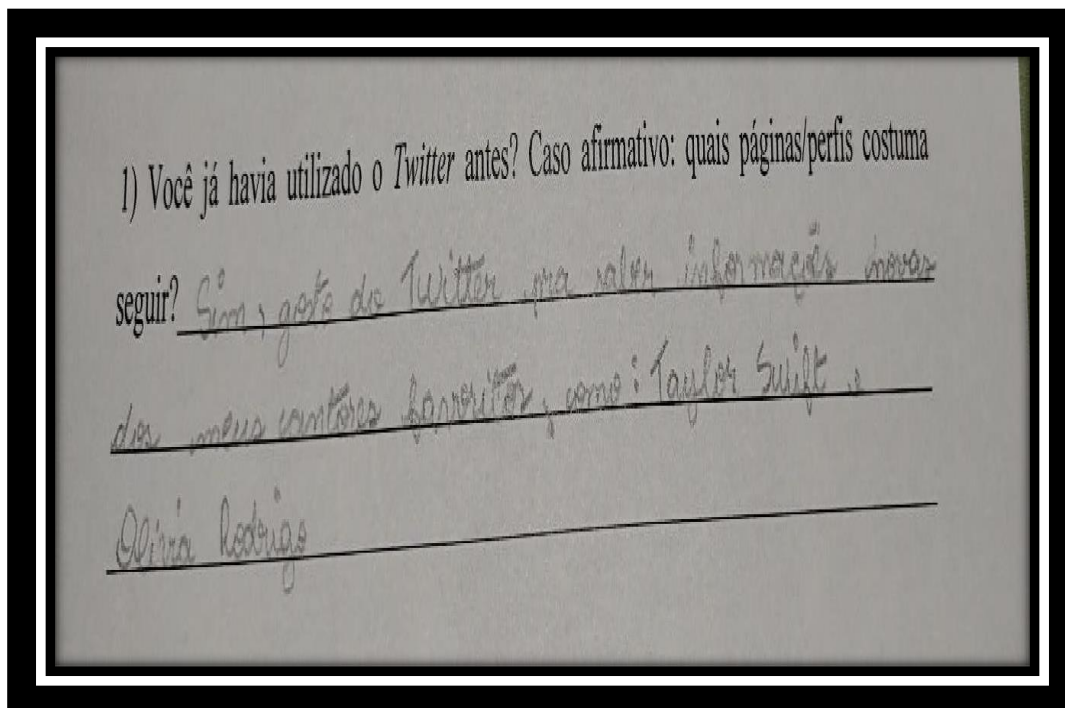 1) Você já havia utilizado o Twitter antes? Caso afirmativo: quais páginas/perfis costuma
seguir? Sim, gosto do Twitter pra saber informações novas
dos meus cantores favoritos, como: Taylor Swift e
Olivia Rodrigo